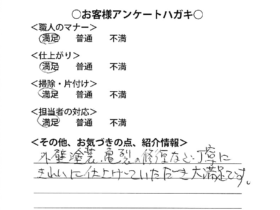 ○お客様アンケートハガキ○
<職人のマナー>
満足 普通 不満
<仕上がり>
満足 普通 不満
<掃除・片付け>
満足 普通 不満
<担当者の対応>
満足 普通 不満
<その他、お気づきの点、紹介情報>
外壁塗装、亀裂の修理など、丁寧に
きれいに仕上げていただき大満足です。